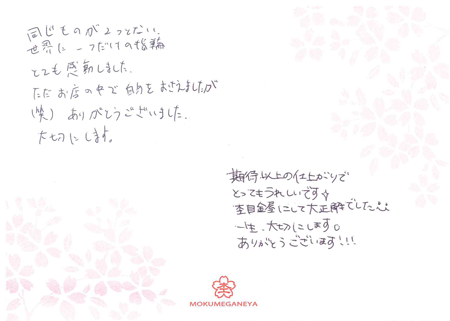 同じものが2つとない、
世界に一つだけの指輪
とても感動しました。
ただお店の中で 自分をおさえましたが
(笑) ありがとうございました。
大切にします。
期待以上の仕上がりで
とってもうれしいです
杢目金屋にして大正解でした
一生、大切にします。
ありがとうございます!!!
MOKUMEGANEYA